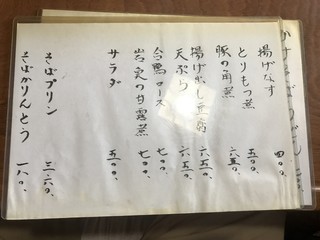 揚げなす 四〇〇、
とりもつ煮 五〇〇、
豚の角煮 六五〇、
揚げ出し豆腐 六五〇、
天ぷら 六五〇、
合鴨ロース 七〇〇、
岩魚の甘露煮 七〇〇、
サラダ 五〇〇、
そばプリン 三六〇、
そばかりんとう 一八〇、